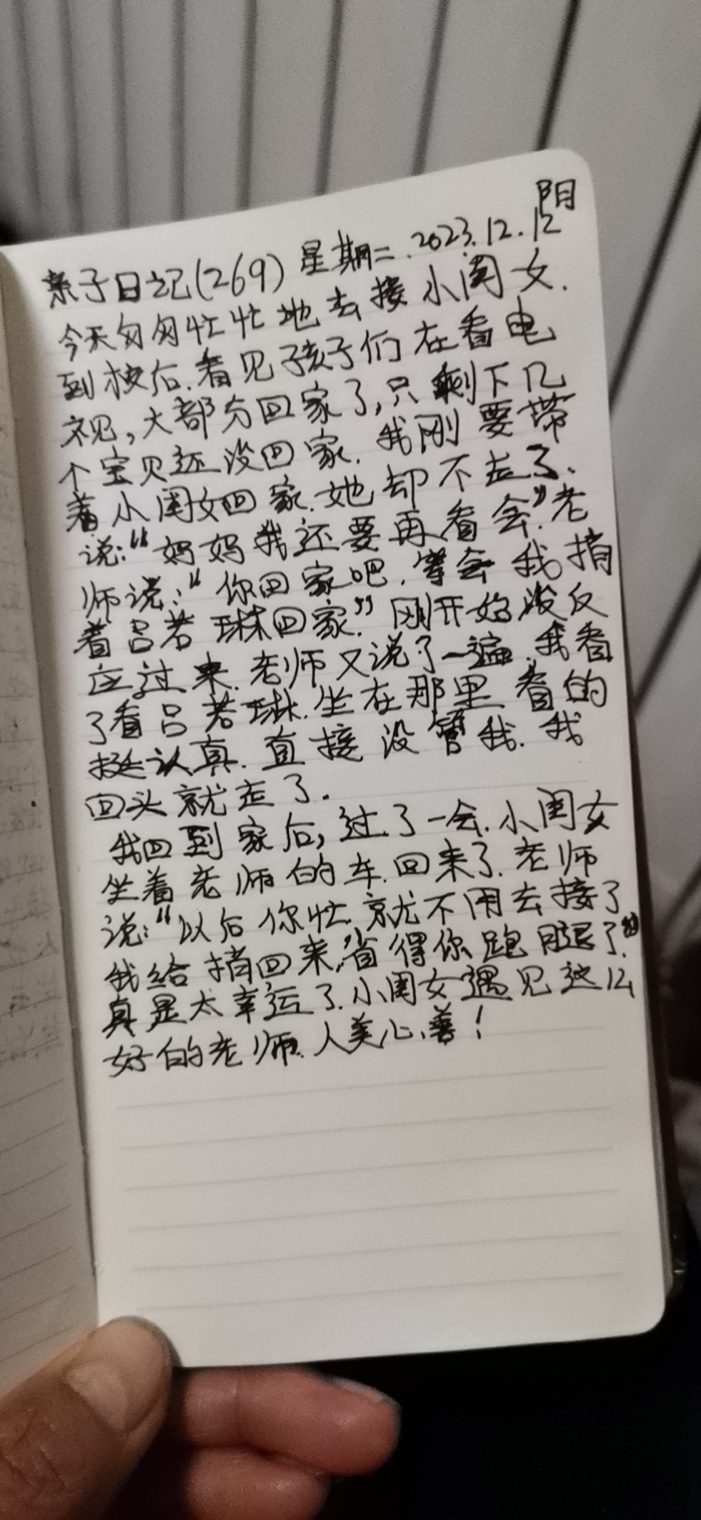 阴
亲子日记(269) 星期二.2023.12.12
今天匆匆忙忙地去接小闺女.
到校后.看见孩子们在看电
视,大部分回家了,只剩下几
个宝贝还没回家.我刚要带
着小闺女回家.她却不走了.
说:“妈妈我还要再看会”老
师说:“你回家吧.等会我捎
着吕若琳回家.”刚开始没反
应过来.老师又说了一遍.我看
了看吕若琳.坐在那里看的
挺认真.直接没管我.我
回头就走了.
我回到家后,过了一会.小闺女
坐着老师的车.回来了.老师
说:“以后你忙.就不用去接了
我给捎回来,省得你跑腿了.”
真是太幸运了.小闺女遇见这么
好的老师.人美心善!